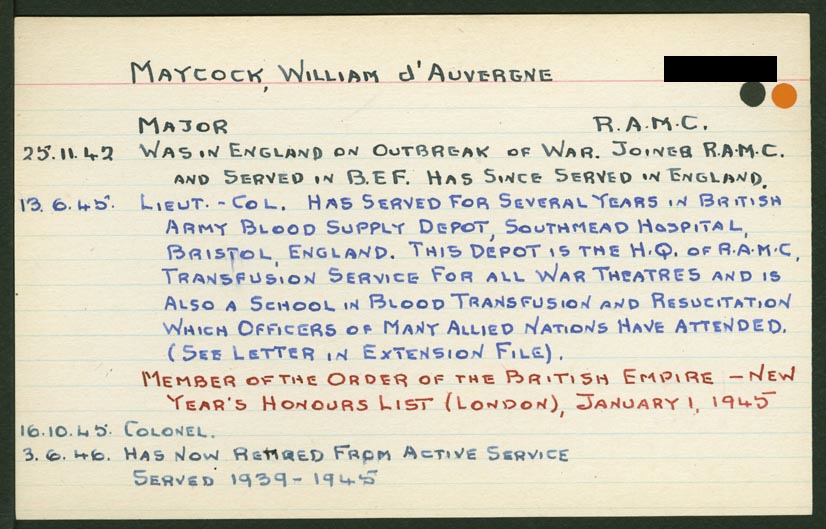 MAYCOCK, WILLIAM d'AUVERGNE
MAJOR R.A.M.C.
25.11.42 WAS IN ENGLAND ON OUTBREAK OF WAR. JOINED R.A.M.C.
AND SERVED IN B.E.F. HAS SINCE SERVED IN ENGLAND.
13.6.45. LIEUT.-COL. HAS SERVED FOR SEVERAL YEARS IN BRITISH
ARMY BLOOD SUPPLY DEPOT, SOUTHMEAD HOSPITAL,
BRISTOL, ENGLAND. THIS DEPOT IS THE H.Q. OF R.A.M.C.
TRANSFUSION SERVICE FOR ALL WAR THEATRES AND IS
ALSO A SCHOOL IN BLOOD TRANSFUSION AND RESUCITATION
WHICH OFFICERS OF MANY ALLIED NATIONS HAVE ATTENDED.
(SEE LETTER IN EXTENSION FILE).
MEMBER OF THE ORDER OF THE BRITISH EMPIRE – NEW
YEAR'S HONOURS LIST (LONDON), JANUARY 1, 1945
16.10.45. COLONEL.
3.6.46. HAS NOW RETIRED FROM ACTIVE SERVICE
SERVED 1939-1945